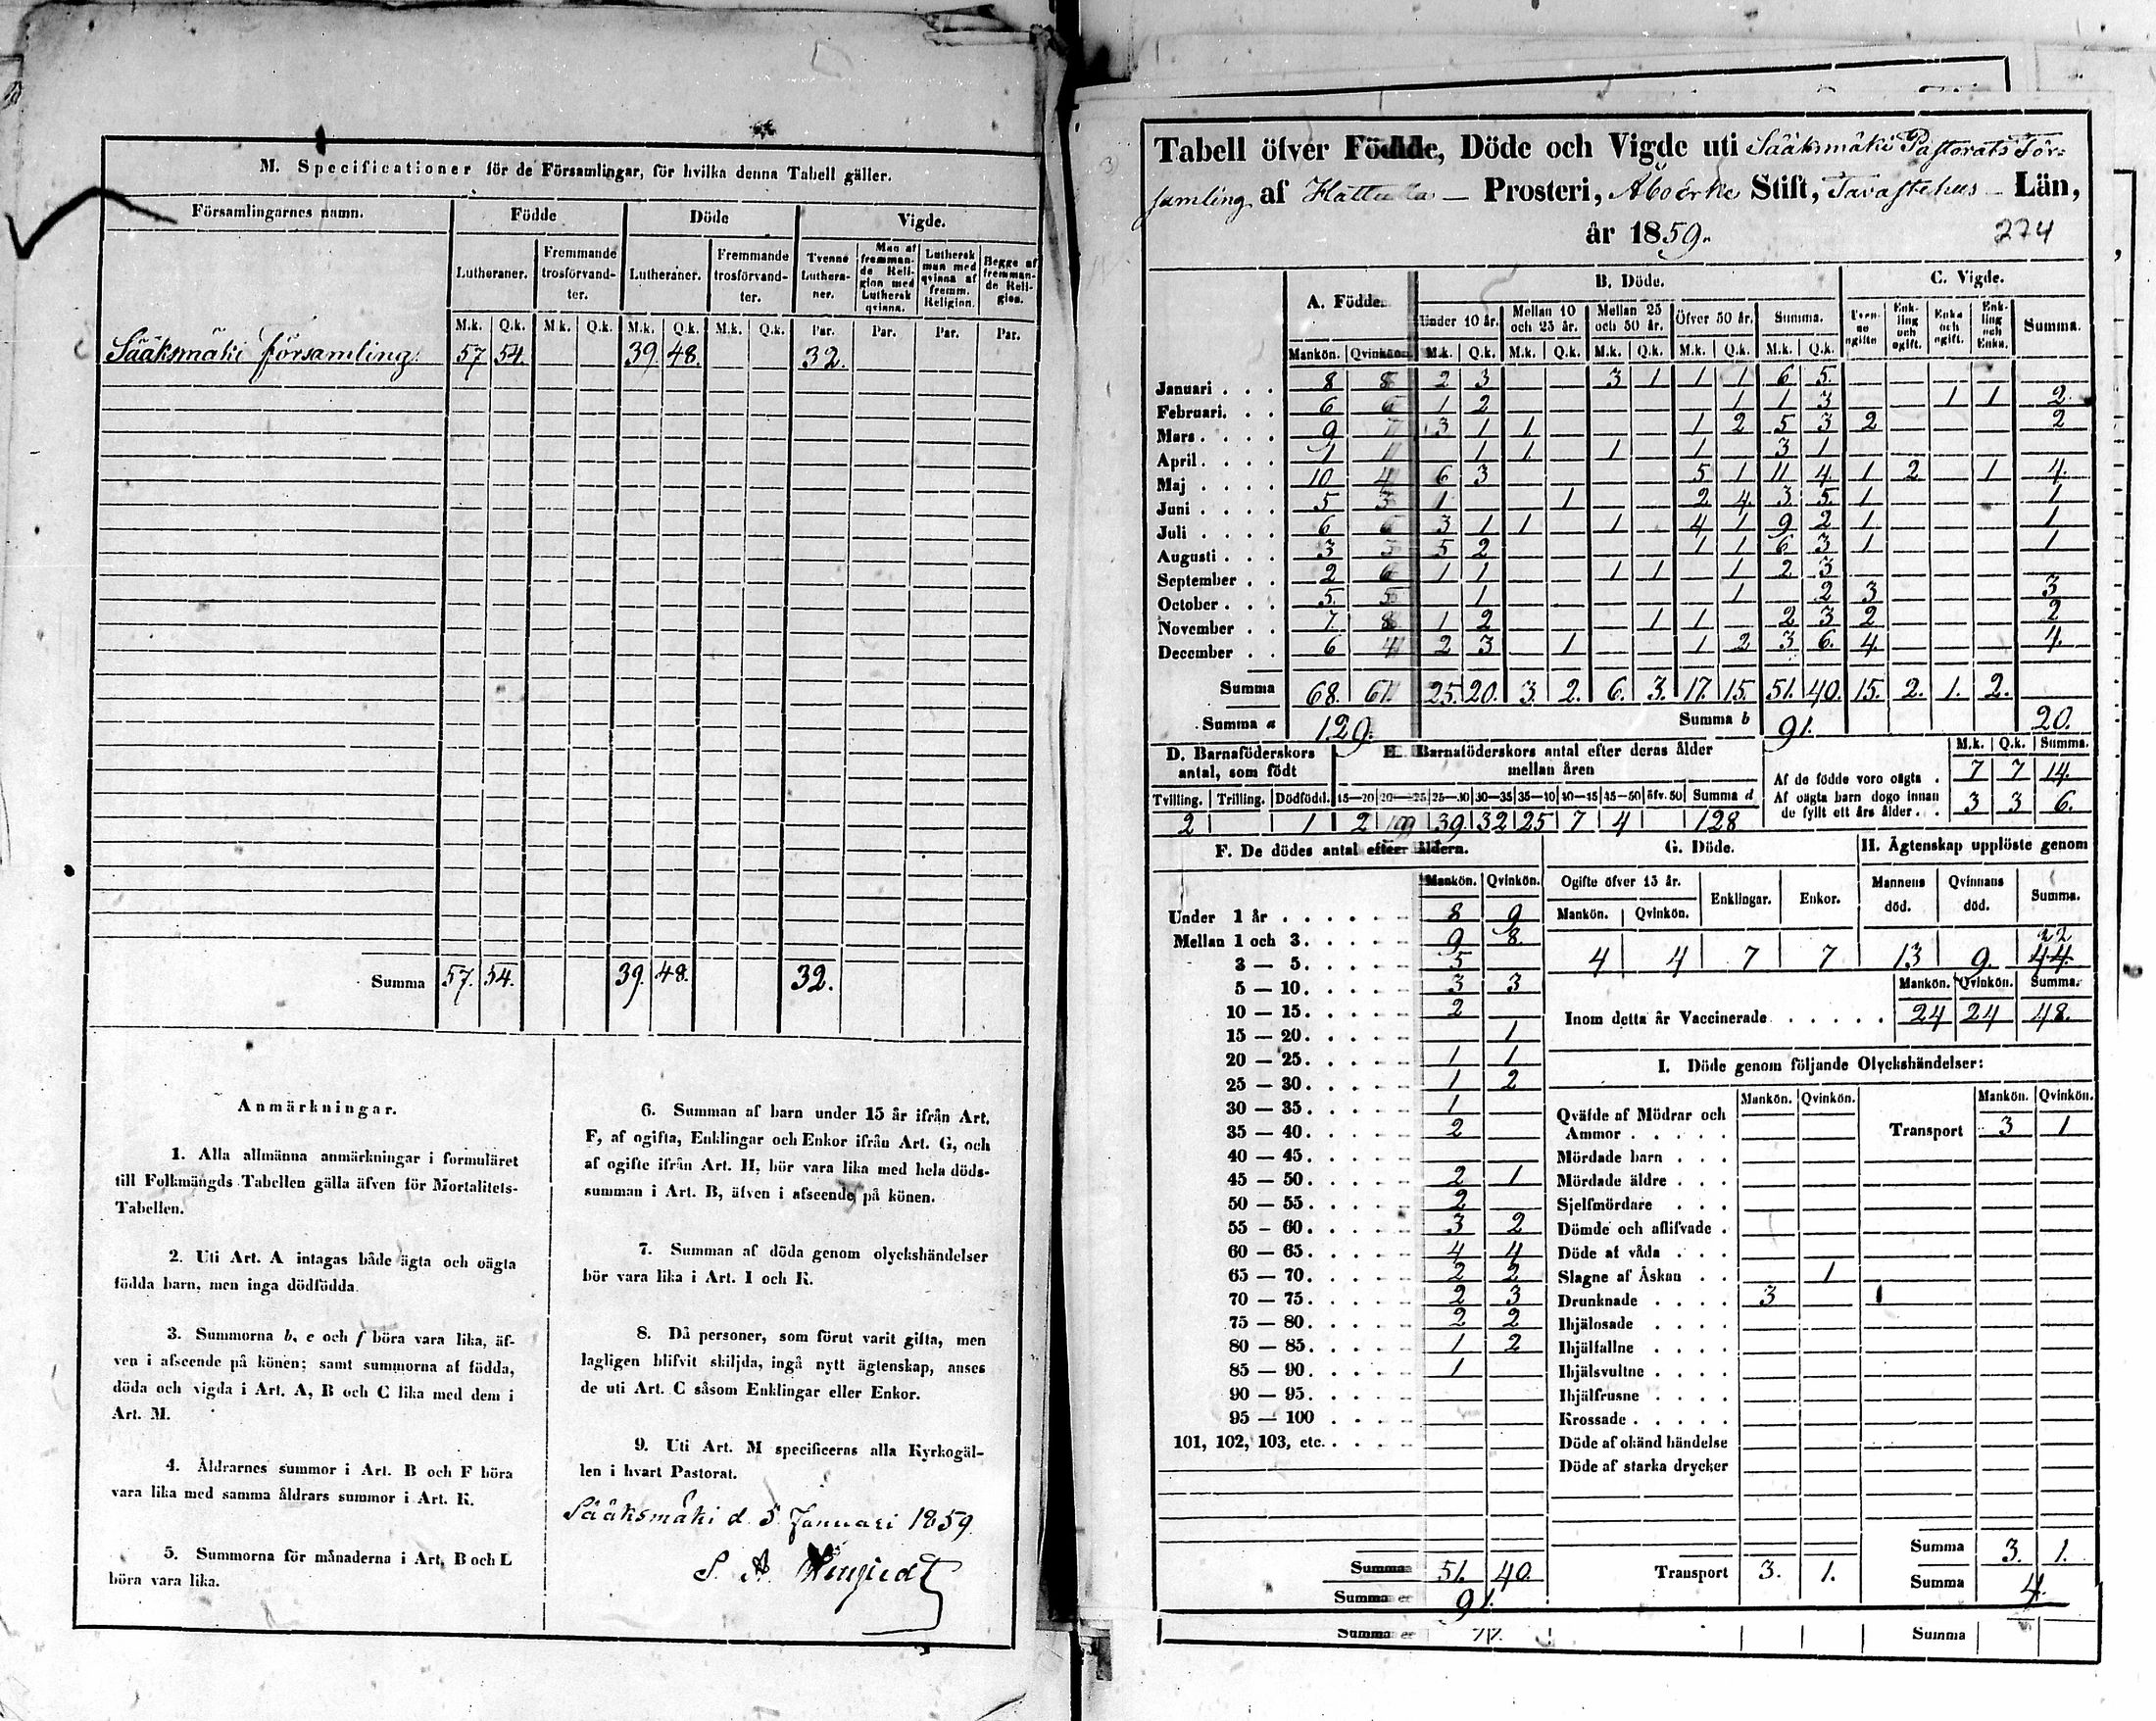 M. Specificationer för de Församlingar, för hvilka denna Tabell gäller.
Församlingarnes namn. Födde Döde Vigde.
Lutheraner. Fremmande trosförvandter. Lutheraner. Fremmande trosförvandter. Tvenne Lutheraner. Man af fremmande Religion med Luthersk qvinna. Luthersk man med qvinna af fremm. Religion. Begge af fremmande Religion.
M.k. Q.k. M.k. Q.k. M.k. Q.k. M.k. Q.k. Par. Par. Par. Par.
Sääksmäki församling. 57 54. 39. 48. 32.
Summa 57. 54. 39. 48. 32.
Anmärkningar.
1. Alla allmänna anmärkningar i formuläret
till Folkmängds Tabellen gälla äfven för Mortalitets-
Tabellen.
2. Uti Art. A intagas både ägta och oägta
födda barn, men inga dödfödda.
3. Summorna b, e och f böra vara lika, äf-
ven i afseende på könen; samt summorna af födda,
döda och vigda i Art. A, B och C lika med dem i
Art. M.
4. Åldrarnes summor i Art. B och F böra
vara lika med samma åldrars summor i Art. K.
5. Summorna för månaderna i Art. B och L
böra vara lika.
6. Summan af barn under 15 år ifrån Art.
F, af ogifta, Enklingar och Enkor ifrån Art. G, och
af ogifte ifrån Art. H, bör vara lika med hela döds-
summan i Art. B, äfven i afseende på könen.
7. Summan af döda genom olyckshändelser
bör vara lika i Art. I och K.
8. Då personer, som förut varit gifta, men
lagligen blifvit skiljda, ingå nytt ägtenskap, anses
de uti Art. C såsom Enklingar eller Enkor.
9. Uti Art. M specificeras alla Kyrkogäl-
len i hvart Pastorat.
Sääksmäki d. 5 Januari 1859.
Tabell öfver Födde, Döde och Vigde uti Sääksmäki Pastorats För-
samling af Hattula Prosteri, Åbo Erke Stift, Tavastehus Län,
år 1859. 224
A. Födde. B. Döde. C. Vigde.
Under 10 år. Mellan 10 och 25 år. Mellan 25 och 50 år. Öfver 50 år. Summa. Tvenne ogifte Enkling och ogift. Enka och ogift. Enkling och Enka. Summa.
Mankön. Qvinkön. M.k. Q.k. M.k. Q.k. M.k. Q.k. M.k. Q.k. M.k. Q.k.
Januari . . . 8 8 2 3 3 1 1 1 6 5.
Februari. . . 6 6 1 2 1 1 3 1 1 2.
Mars . . . . 9 7 3 1 1 1 2 5 3 2 2
April . . . . 1 1 1 1 1 1 3 1
Maj . . . . 10 4 6 3 5 1 11 4 1 2 1 4.
Juni . . . . 5 3 1 1 2 4 3 5 1 1
Juli . . . . 6 6 3 1 1 1 4 1 9 2 1 1
Augusti . . . 3 5 5 2 1 1 6 3 1 1
September . . 2 6 1 1 1 1 1 2 3
October . . . 5. 5 1 1 2 3 3
November . . 7 8 1 2 1 1 2 3 2 2
December . . 6 4 2 3 1 1 2 3 6. 4. 4.
Summa 68. 61 25. 20. 3. 2. 6. 3. 17. 15. 51. 40. 15. 2. 1. 2.
Summa a 129. Summa b 91. 20.
D. Barnaföderskors antal, som födt
E. Barnaföderskors antal efter deras ålder mellan åren
M.k. Q.k. Summa.
Af de födde voro oägta . 7 7 14.
Af oägta barn dogo innan de fyllt ett års ålder . . 3 3 6.
Tvilling. Trilling. Dödfödd. 15—20 20—25 25—30 30—35 35—40 40—45 45—50 öfv. 50 Summa d
2 1 2 19 39. 32 25 7 4 128
F. De dödes antal efter åldern.
Mankön. Qvinkön.
Under 1 år . . . . . . 8 9
Mellan 1 och 3. . . . . 9 8.
3 — 5. . . . . 5
5 — 10. . . . . 3 3
10 — 15. . . . . 2
15 — 20. . . . . 1
20 — 25. . . . . 1 1
25 — 30. . . . . 1 2
30 — 35. . . . . 1
35 — 40. . . . . 2
40 — 45. . . . .
45 — 50. . . . . 2 1
50 — 55. . . . . 2
55 — 60. . . . . 3 2
60 — 65. . . . . 4 4
65 — 70. . . . . 2 2
70 — 75. . . . . 2 3
75 — 80. . . . . 2 2
80 — 85. . . . . 1 2
85 — 90. . . . . 1
90 — 95. . . . .
95 — 100 . . . .
101, 102, 103, etc. . . . .
Summa 51. 40.
Summa e 91.
G. Döde. H. Ägtenskap upplöste genom
Ogifte öfver 15 år. Enklingar. Enkor. Mannens död. Qvinnans död. Summa.
Mankön. Qvinkön.
22
4 4 7 7 13 9. 44.
Mankön. Qvinkön. Summa.
Inom detta år Vaccinerade . . . . . 24 24 48.
I. Döde genom följande Olyckshändelser:
Mankön. Qvinkön. Mankön. Qvinkön.
Qväfde af Mödrar och
Ammor . . . . . Transport 3 1
Mördade barn . . .
Mördade äldre . . .
Sjelfmördare . . .
Dömde och aflifvade .
Döde af våda . . .
Slagne af Åskan . . 1
Drunknade . . . . 3
Ihjälosade . . . .
Ihjälfallne . . . .
Ihjälsvultne . . . .
Ihjälfrusne . . . .
Krossade . . . . .
Döde af okänd händelse
Döde af starka drycker
Summa 3. 1.
Transport 3. 1. Summa 4.
Summa e Summa